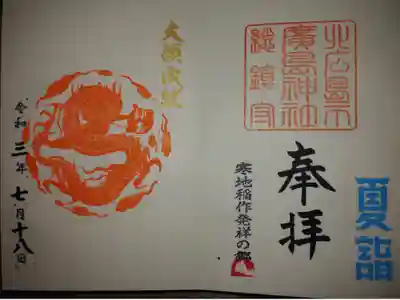 夏詣
北広島市
廣島神社
総鎮守
奉拝
寒地稲作発祥の郷
大願成就
令和三年七月十八日